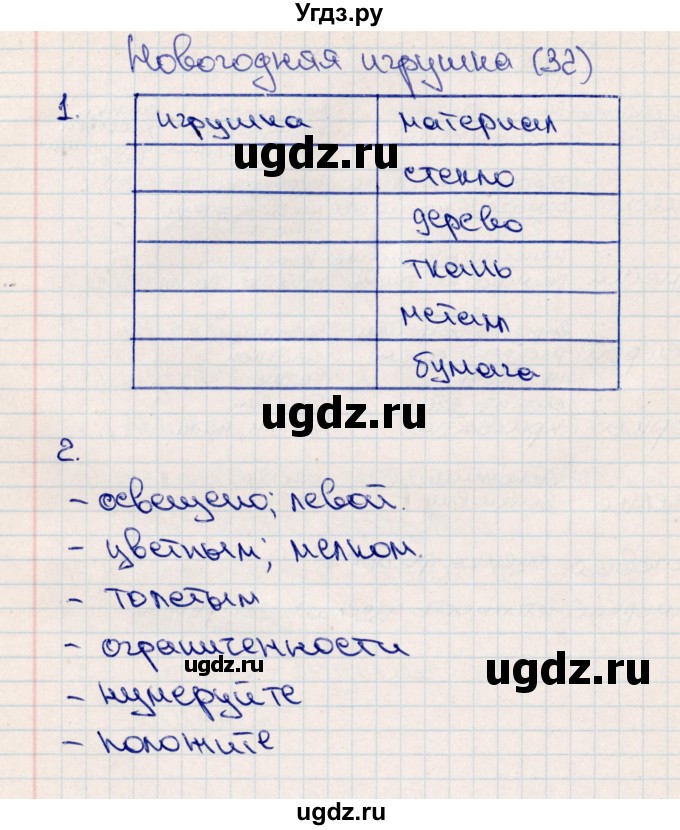 Угдз.ру
Новогодняя игрушка (32)
1.
игрушка материал
ugdz.ru
стекло
дерево
ткань
металл
бумага
ugdz.ru
2.
- освещено; левой.
- цветным; мелком.
- толстым
- ограниченности
ugdz.ru
ugdz.ru
- нумеруйте
- положите
ugdz.ru